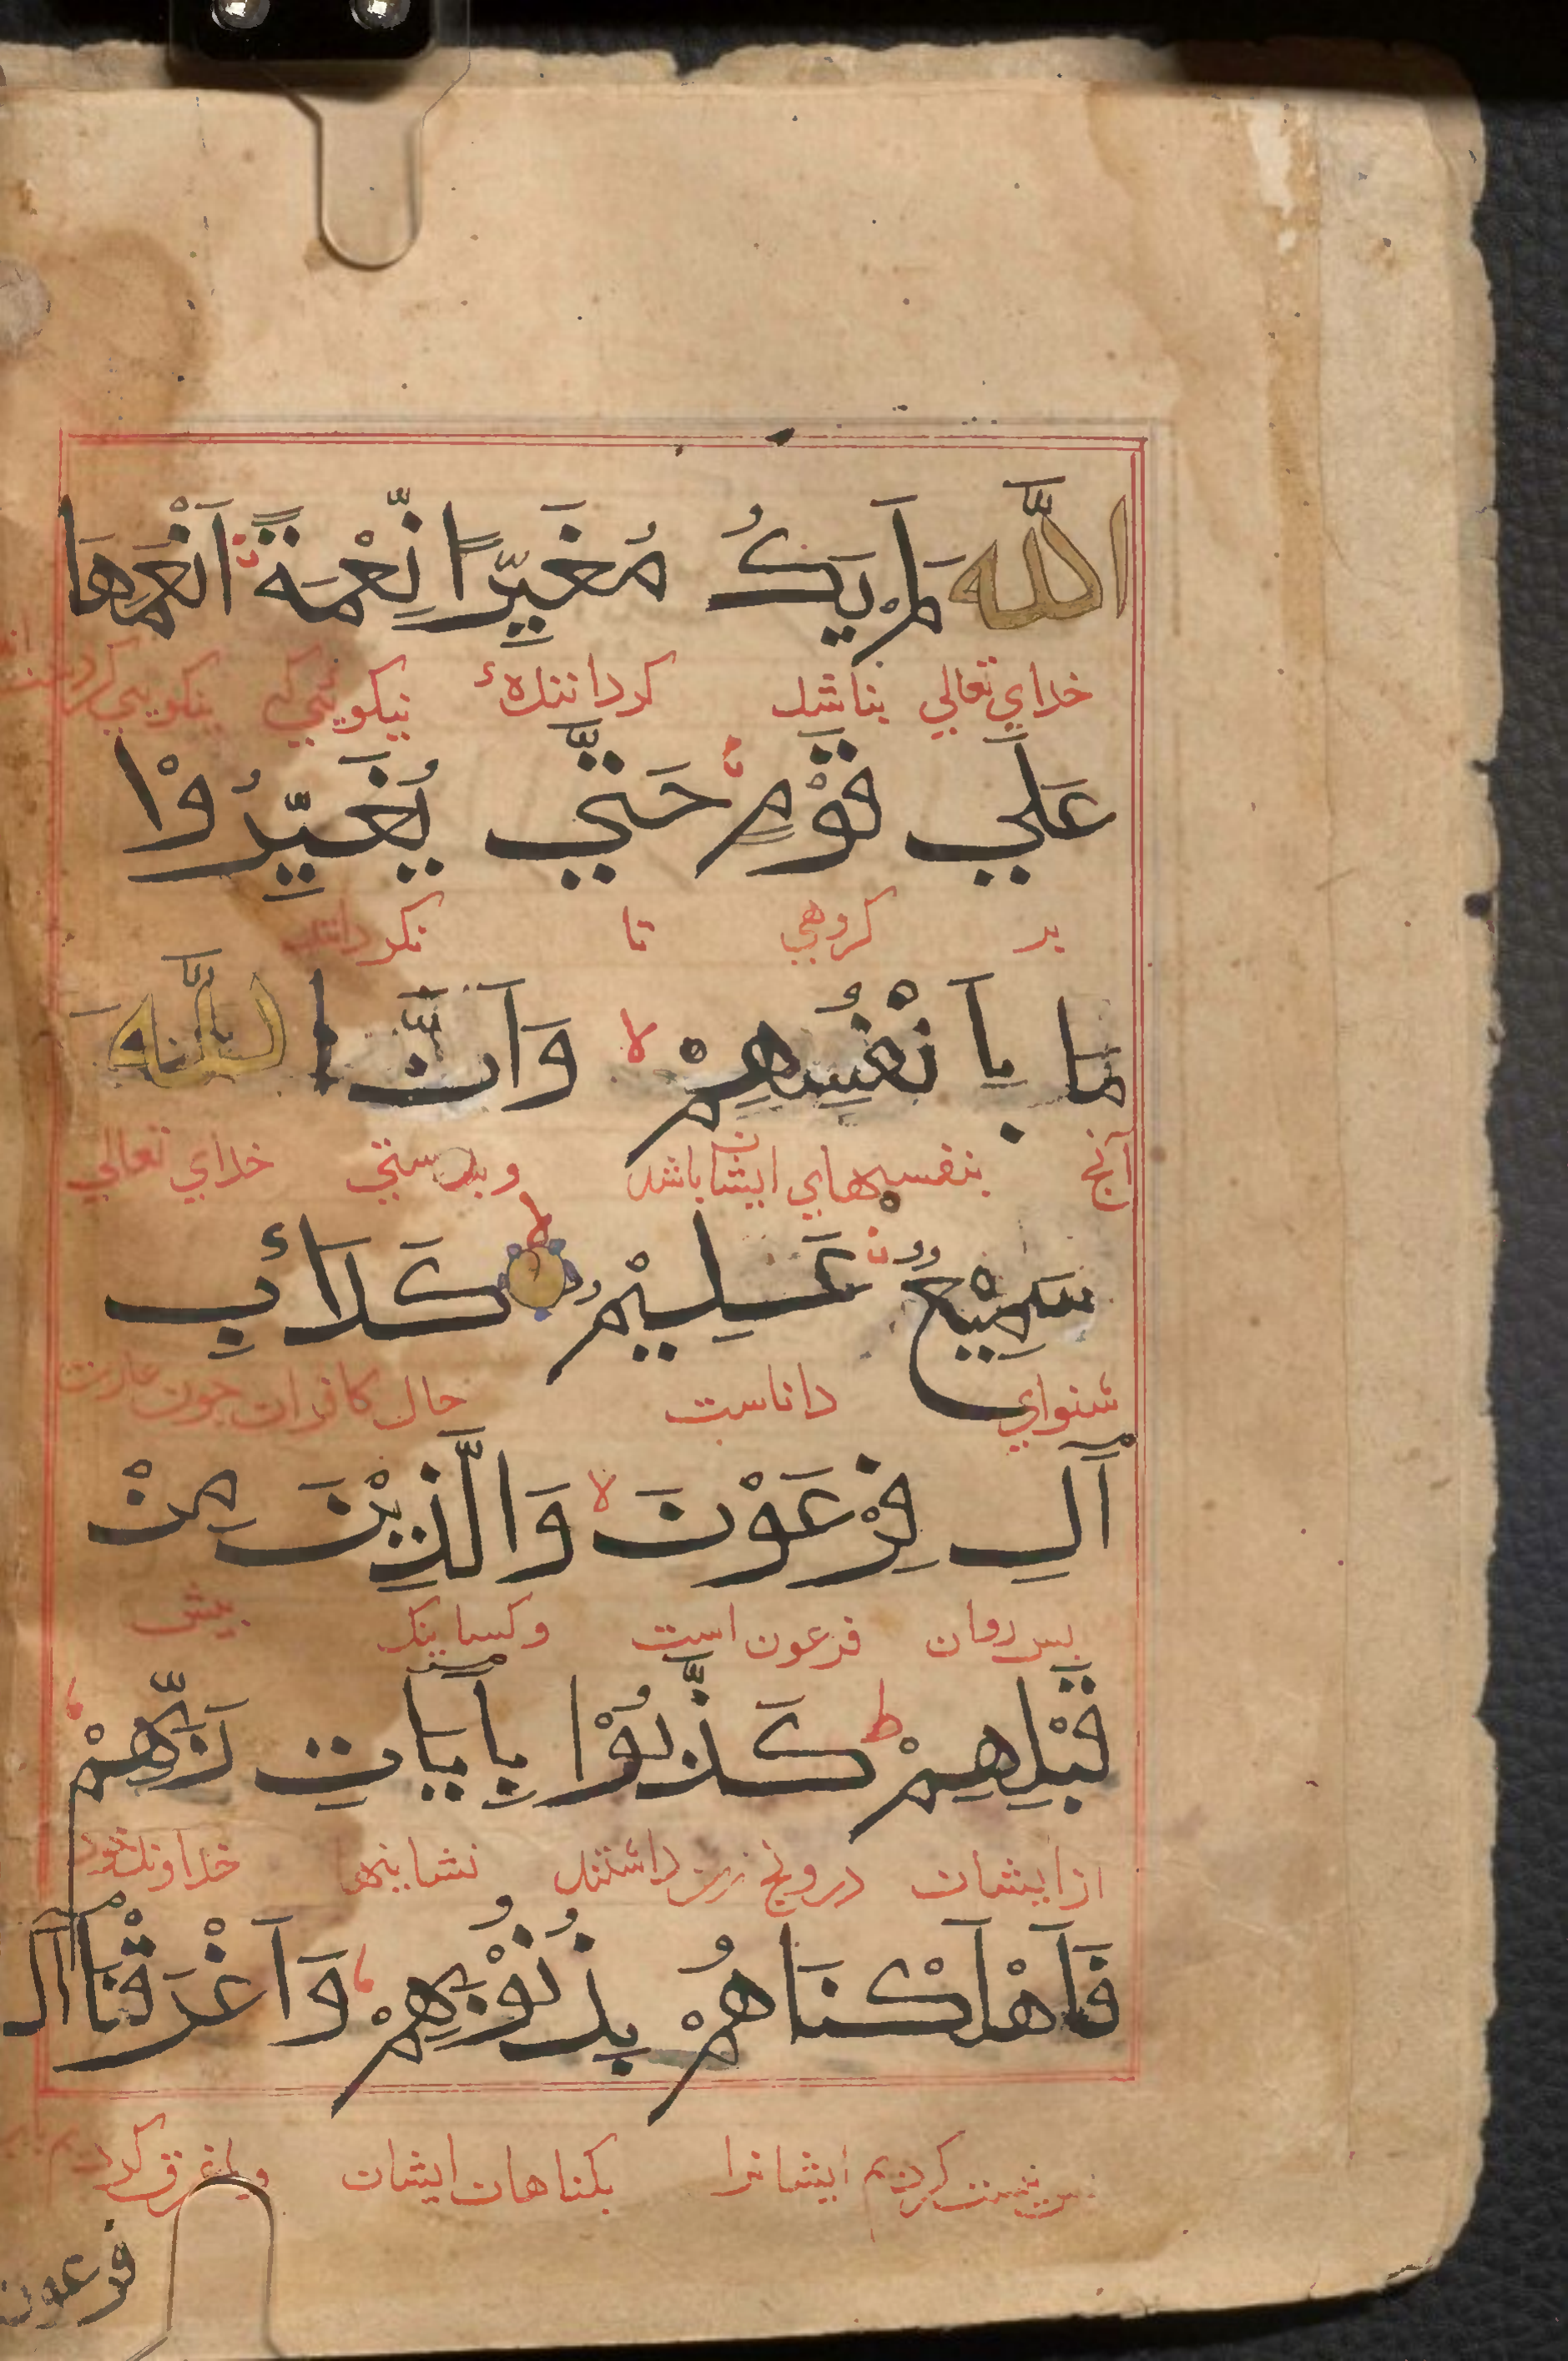 اللَّهَ لَمْ يَكُ مُغَيِّرًا نِّعْمَةً اَنْعَمَهَا
خدای تعالی بناشد کردانندهٔ نیکویی بنکویی کرد
عَلَي قَوْمٍ حَتَّي يُغَيِّرُوْا
بر کروهی تا نکردانند
مَا بِاَنْفُسِهِمْ لا وَاَنَّ اللَّهَ
آنچ بنفسهای ایشان باشد وبدرستی خدای تعالی
سَمِيْعٌ عَلِيْمٌ كَدَاْبِ
شنوای داناست حال کافران جون عادت
اٰلِ فِرْعَوْنَ لا وَالَّذِيْنَ مِنْ
بس روان فرعون است وکساینک بیش
قَبْلِهِمْ ط كَذَّبُوْا بِاٰيَاتِ رَبِّهِمْ
ازایشان دروغ زن داشتند نشانیها خداوند خود
فَاَهْلَكْنَاهُمْ بِذُنُوْبِهِمْ وَاَغْرَقْنَا اٰلَ
کردیم ایشانرا بکناهان ایشان وغرق کردیم
فرعون